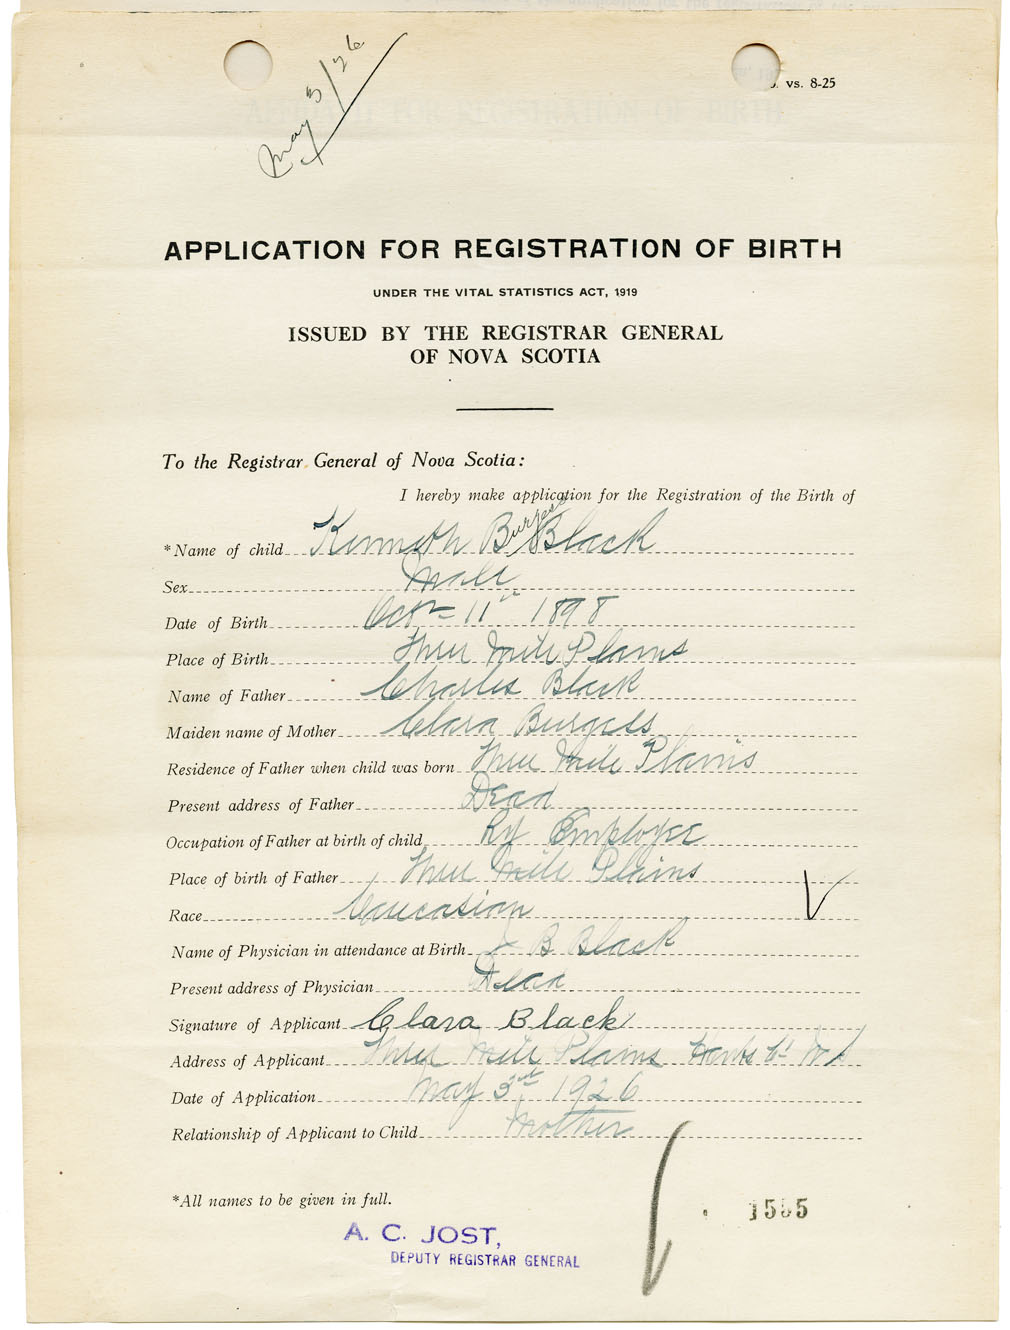 May 5/26
vs. 8-25
APPLICATION FOR REGISTRATION OF BIRTH
UNDER THE VITAL STATISTICS ACT, 1919
ISSUED BY THE REGISTRAR GENERAL
OF NOVA SCOTIA
To the Registrar General of Nova Scotia:
I hereby make application for the Registration of the Birth of
*Name of child Kenneth Burgess Black
Sex Male
Date of Birth Octr 11th 1898
Place of Birth Three Mile Plains
Name of Father Charles Black
Maiden name of Mother Clara Burgess
Residence of Father when child was born Three Mile Plains
Present address of Father Dead
Occupation of Father at birth of child Ry Employee
Place of birth of Father Three Mile Plains
Race Caucasian
Name of Physician in attendance at Birth J B Black
Present address of Physician Dead
Signature of Applicant Clara Black
Address of Applicant Three Mile Plains Hants Co NS
Date of Application May 3rd 1926
Relationship of Applicant to Child Mother
*All names to be given in full.
A. C. JOST,
DEPUTY REGISTRAR GENERAL